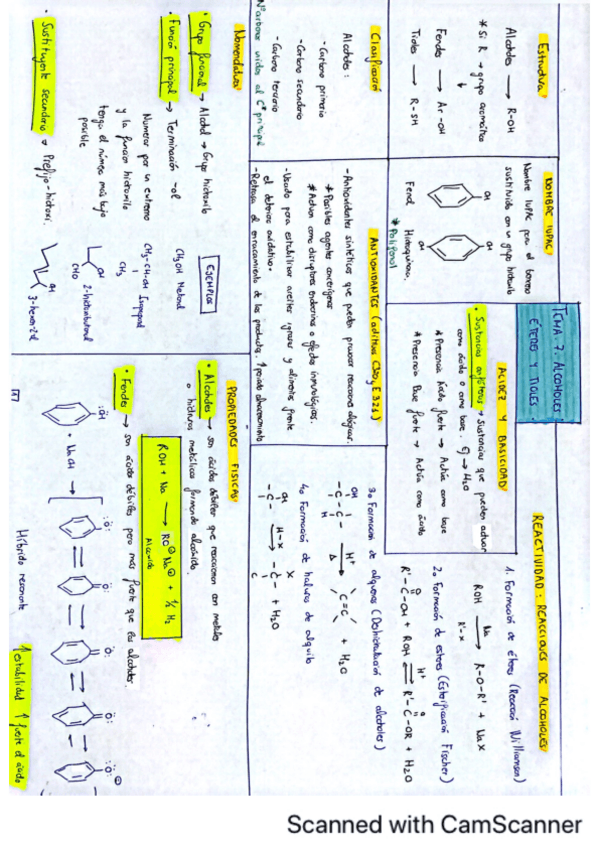 TEMA 7. ALCOHOLES
ÉTERES Y TIOLES
Estructura:
Alcoholes → R-OH
* Si R → grupo aromático
↓
Fenoles → Ar-OH
Tioles → R-SH
NOMBRE IUPAC:
Nombre IUPAC para el benceno
sustituido con un grupo hidroxilo
OH
OH
OH
Fenol
Hidroquinona
* Polifenol
ACIDEZ Y BASICIDAD
• Sustancias anfóteras → Sustancias que pueden actuar
como ácido o como base. Ej → H2O
* Presencia Ácido fuerte → Actúa como base
* Presencia Base fuerte → Actúa como ácido
REACTIVIDAD: REACCIONES DE ALCOHOLES
1. Formación de éteres (Reacción Williamson)
ROH Na R'-X → R-O-R' + NaX
2. Formación de esteres (Esterificación Fischer)
R'-C-OH + ROH H+ R'-C-OR + H2O
O
O
3. Formación de alquenos (Deshidratación de alcoholes)
OH
-C-C- H+ → Δ C=C + H2O
H
4. Formación de haluros de alquilo
OH
-C- H-X → X -C- + H2O
Clasificación
Alcoholes:
- Carbono primario
- Carbono secundario
- Carbono terciario
Nº carbonos unidos al Cº principal
ANTIOXIDANTES (aditivos E320 y E321)
- Antioxidantes sintéticos que pueden provocar reacciones alérgicas.
* Posibles agentes cancerígenos
* Actúan como disruptores endocrinos o efectos inmunológicos.
- Usado para estabilizar aceites, grasas y alimentos frente
el deterioro oxidativo.
- Retrasa el enranciamiento de los productos. ↑ periodo almacenamiento
Nomenclatura
• Grupo funcional → Alcohol → Grupo hidroxilo
• Función principal → Terminación -ol
Numerar por un extremo
y la función hidroxilo
tenga el número más bajo
posible
• Sustituyente secundario → Prefijo-hidroxi.
EJEMPLOS
CH3OH Metanol
CH3-CH-OH Isopropanol
CH3
OH
CHO
2-hidroxibutanal
OH
3-hexanol
PROPIEDADES FISICAS
• Alcoholes → son ácidos débiles que reaccionan con metales
o hidruros metálicos formando alcóxidos.
ROH + Na → RO⊖Na⊕ + ½ H2
Alcóxido
• Fenoles → son ácido débiles pero más fuerte que los alcoholes.
:ÖH
+ NaOH →
Híbrido resonante
↑ estabilidad ↑ fuerte el ácido
Scanned with CamScanner